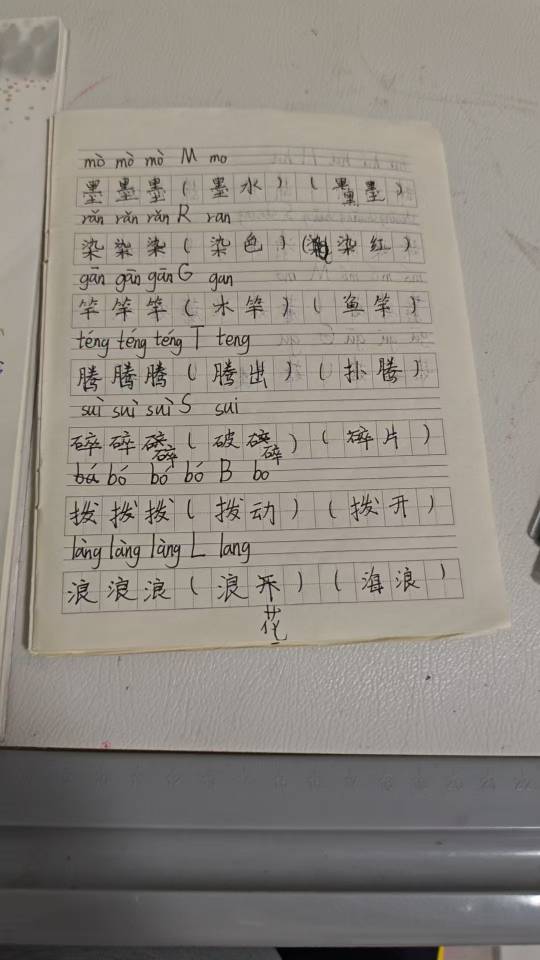 mò mò mò M mo
墨 墨 墨 ( 墨 水 ) ( 墨 墨 )
rǎn rǎn rǎn R ran
染 染 染 ( 染 色 ) ( 染 红 )
gān gān gān G gan
竿 竿 竿 ( 木 竿 ) ( 鱼 竿 )
téng téng téng T teng
腾 腾 腾 ( 腾 出 ) ( 扑 腾 )
suì suì suì S sui
碎 碎 碎 ( 破 碎 ) ( 碎 片 )
bó bó bó B bo
拨 拨 拨 ( 拨 动 ) ( 拨 开 )
làng làng làng L lang
浪 浪 浪 ( 浪 ) ( 海 浪 )
花